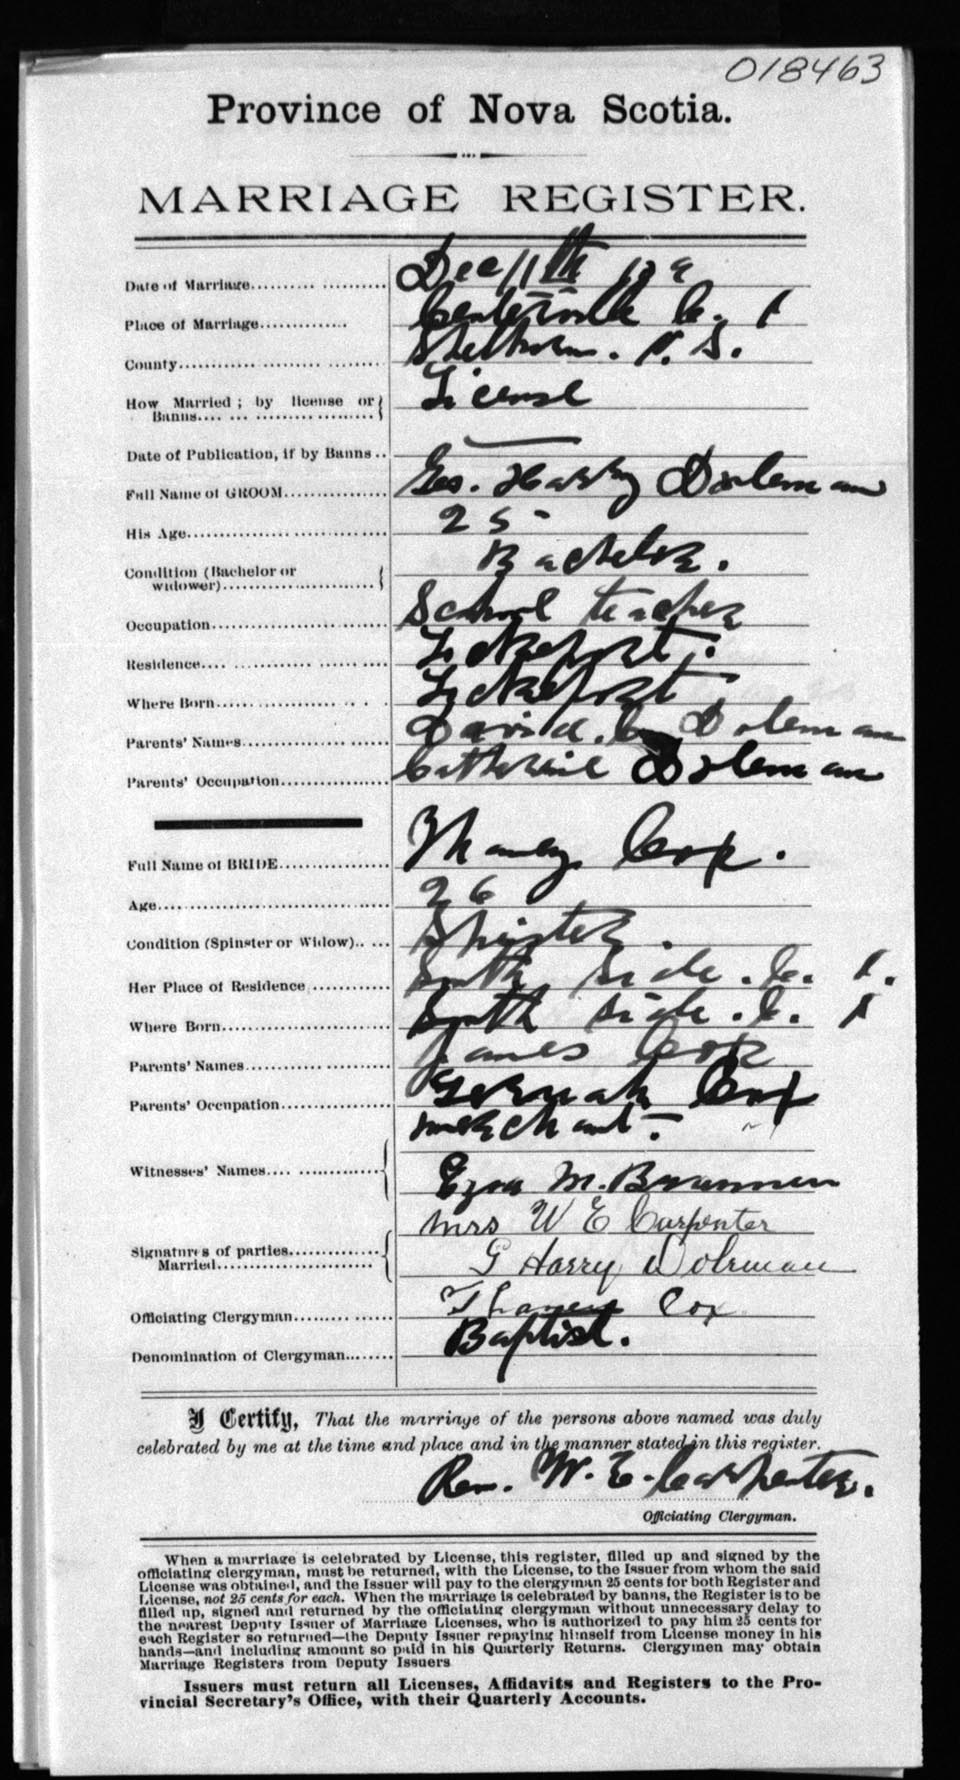 018463
Province of Nova Scotia.
MARRIAGE REGISTER.
Date of Marriage Dec 11th
Place of Marriage Centerville C. I
County Shelburne. N. S.
How Married; by license or Banns License
Date of Publication, if by Banns —
Full Name of GROOM Geo. Harry Doleman
His Age 25-
Condition (Bachelor or widower) Bachelor.
Occupation School teacher
Residence Lockeport.
Where Born Lockeport
Parents' Names David. C. Doleman
Parents' Occupation Catherine Doleman
Full Name of BRIDE Thaney Cox.
Age 26
Condition (Spinster or Widow) Spinster.
Her Place of Residence South Side. C. I.
Where Born South Side. C. I
Parents' Names James Cox
Parents' Occupation Cox
merchant.-
Witnesses' Names Ezra M. Brannen
Mrs W E Carpenter
Signatures of parties Married G Harry Doleman
Officiating Clergyman Thaney Cox
Denomination of Clergyman Baptist.
I Certify, That the marriage of the persons above named was duly
celebrated by me at the time and place and in the manner stated in this register.
Rev. W. E. Carpenter.
Officiating Clergyman.
When a marriage is celebrated by License, this register, filled up and signed by the
officiating clergyman, must be returned, with the License, to the Issuer from whom the said
License was obtained, and the Issuer will pay to the clergyman 25 cents for both Register and
License, not 25 cents for each. When the marriage is celebrated by banns, the Register is to be
filled up, signed and returned by the officiating clergyman without unnecessary delay to
the nearest Deputy Issuer of Marriage Licenses, who is authorized to pay him 25 cents for
each Register so returned—the Deputy Issuer repaying himself from License money in his
hands—and including amount so paid in his Quarterly Returns. Clergymen may obtain
Marriage Registers from Deputy Issuers
Issuers must return all Licenses, Affidavits and Registers to the Pro-
vincial Secretary's Office, with their Quarterly Accounts.